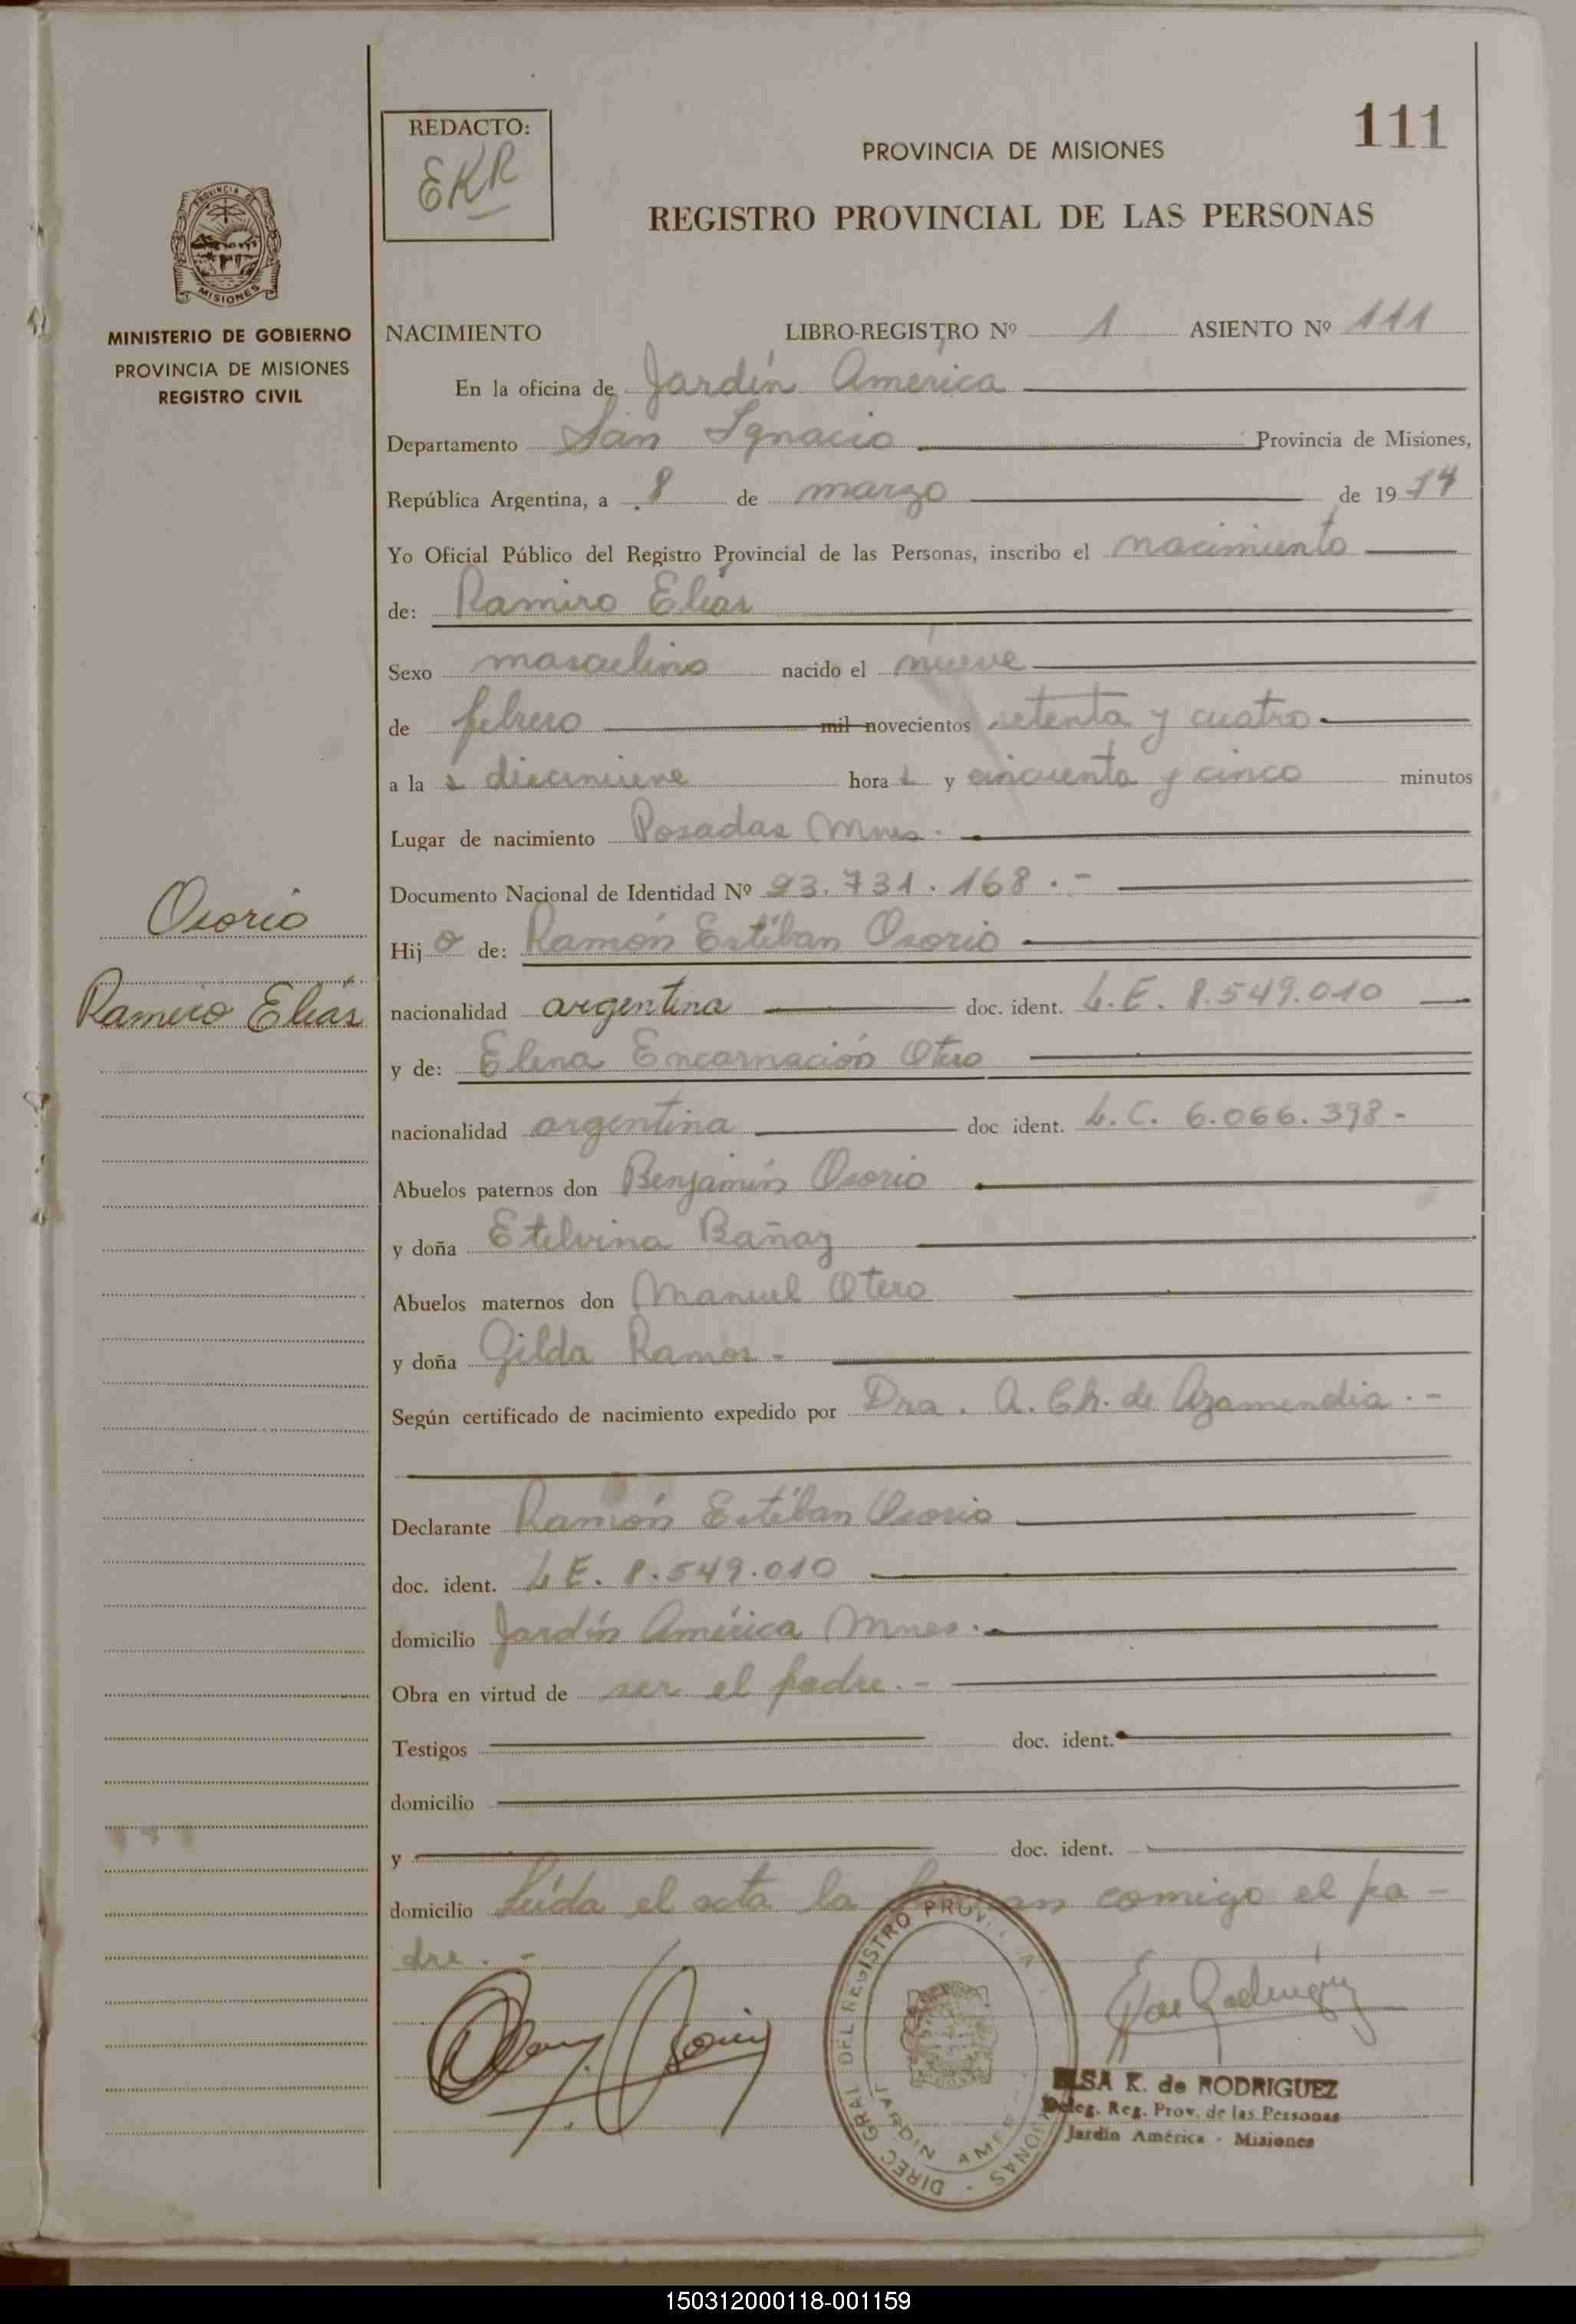 111
REDACTO:
EKR
PROVINCIA DE MISIONES
REGISTRO PROVINCIAL DE LAS PERSONAS
PROVINCIA DE
MISIONES
MINISTERIO DE GOBIERNO
PROVINCIA DE MISIONES
REGISTRO CIVIL
Osorio
Ramiro Elías
NACIMIENTO LIBRO-REGISTRO Nº 1 ASIENTO Nº 111
En la oficina de Jardín América
Departamento San Ignacio Provincia de Misiones,
República Argentina, a 8 de marzo de 1974
Yo Oficial Público del Registro Provincial de las Personas, inscribo el nacimiento
de: Ramiro Elías
Sexo masculino nacido el nueve
de febrero mil novecientos setenta y cuatro
a la s diecinueve hora s y cincuenta y cinco minutos
Lugar de nacimiento Posadas Mnes.
Documento Nacional de Identidad Nº 23.731.168.-
Hijo de: Ramón Estéban Osorio
nacionalidad argentina doc. ident. L.E. 8.549.010
y de: Elena Encarnación Otero
nacionalidad argentina doc. ident. L.C. 6.066.398-
Abuelos paternos don Benjamín Osorio
y doña Etelvina Bañay
Abuelos maternos don Manuel Otero
y doña Gilda Ramos-
Según certificado de nacimiento expedido por Dra. A. Ch. de Azamendia.-
Declarante Ramón Estéban Osorio
doc. ident. L E. 8.549.010
domicilio Jardín América Mnes.
Obra en virtud de ser el padre.-
Testigos doc. ident.
domicilio
y doc. ident.
domicilio Leída el acta la firman comigo el pa-
dre.-
DIREC GRAL DEL REGISTRO PROV. PERSONAS
JARDIN AMER
ELSA K. de RODRIGUEZ
Deleg. Reg. Prov. de las Personas
Jardín América - Misiones
150312000118-001159